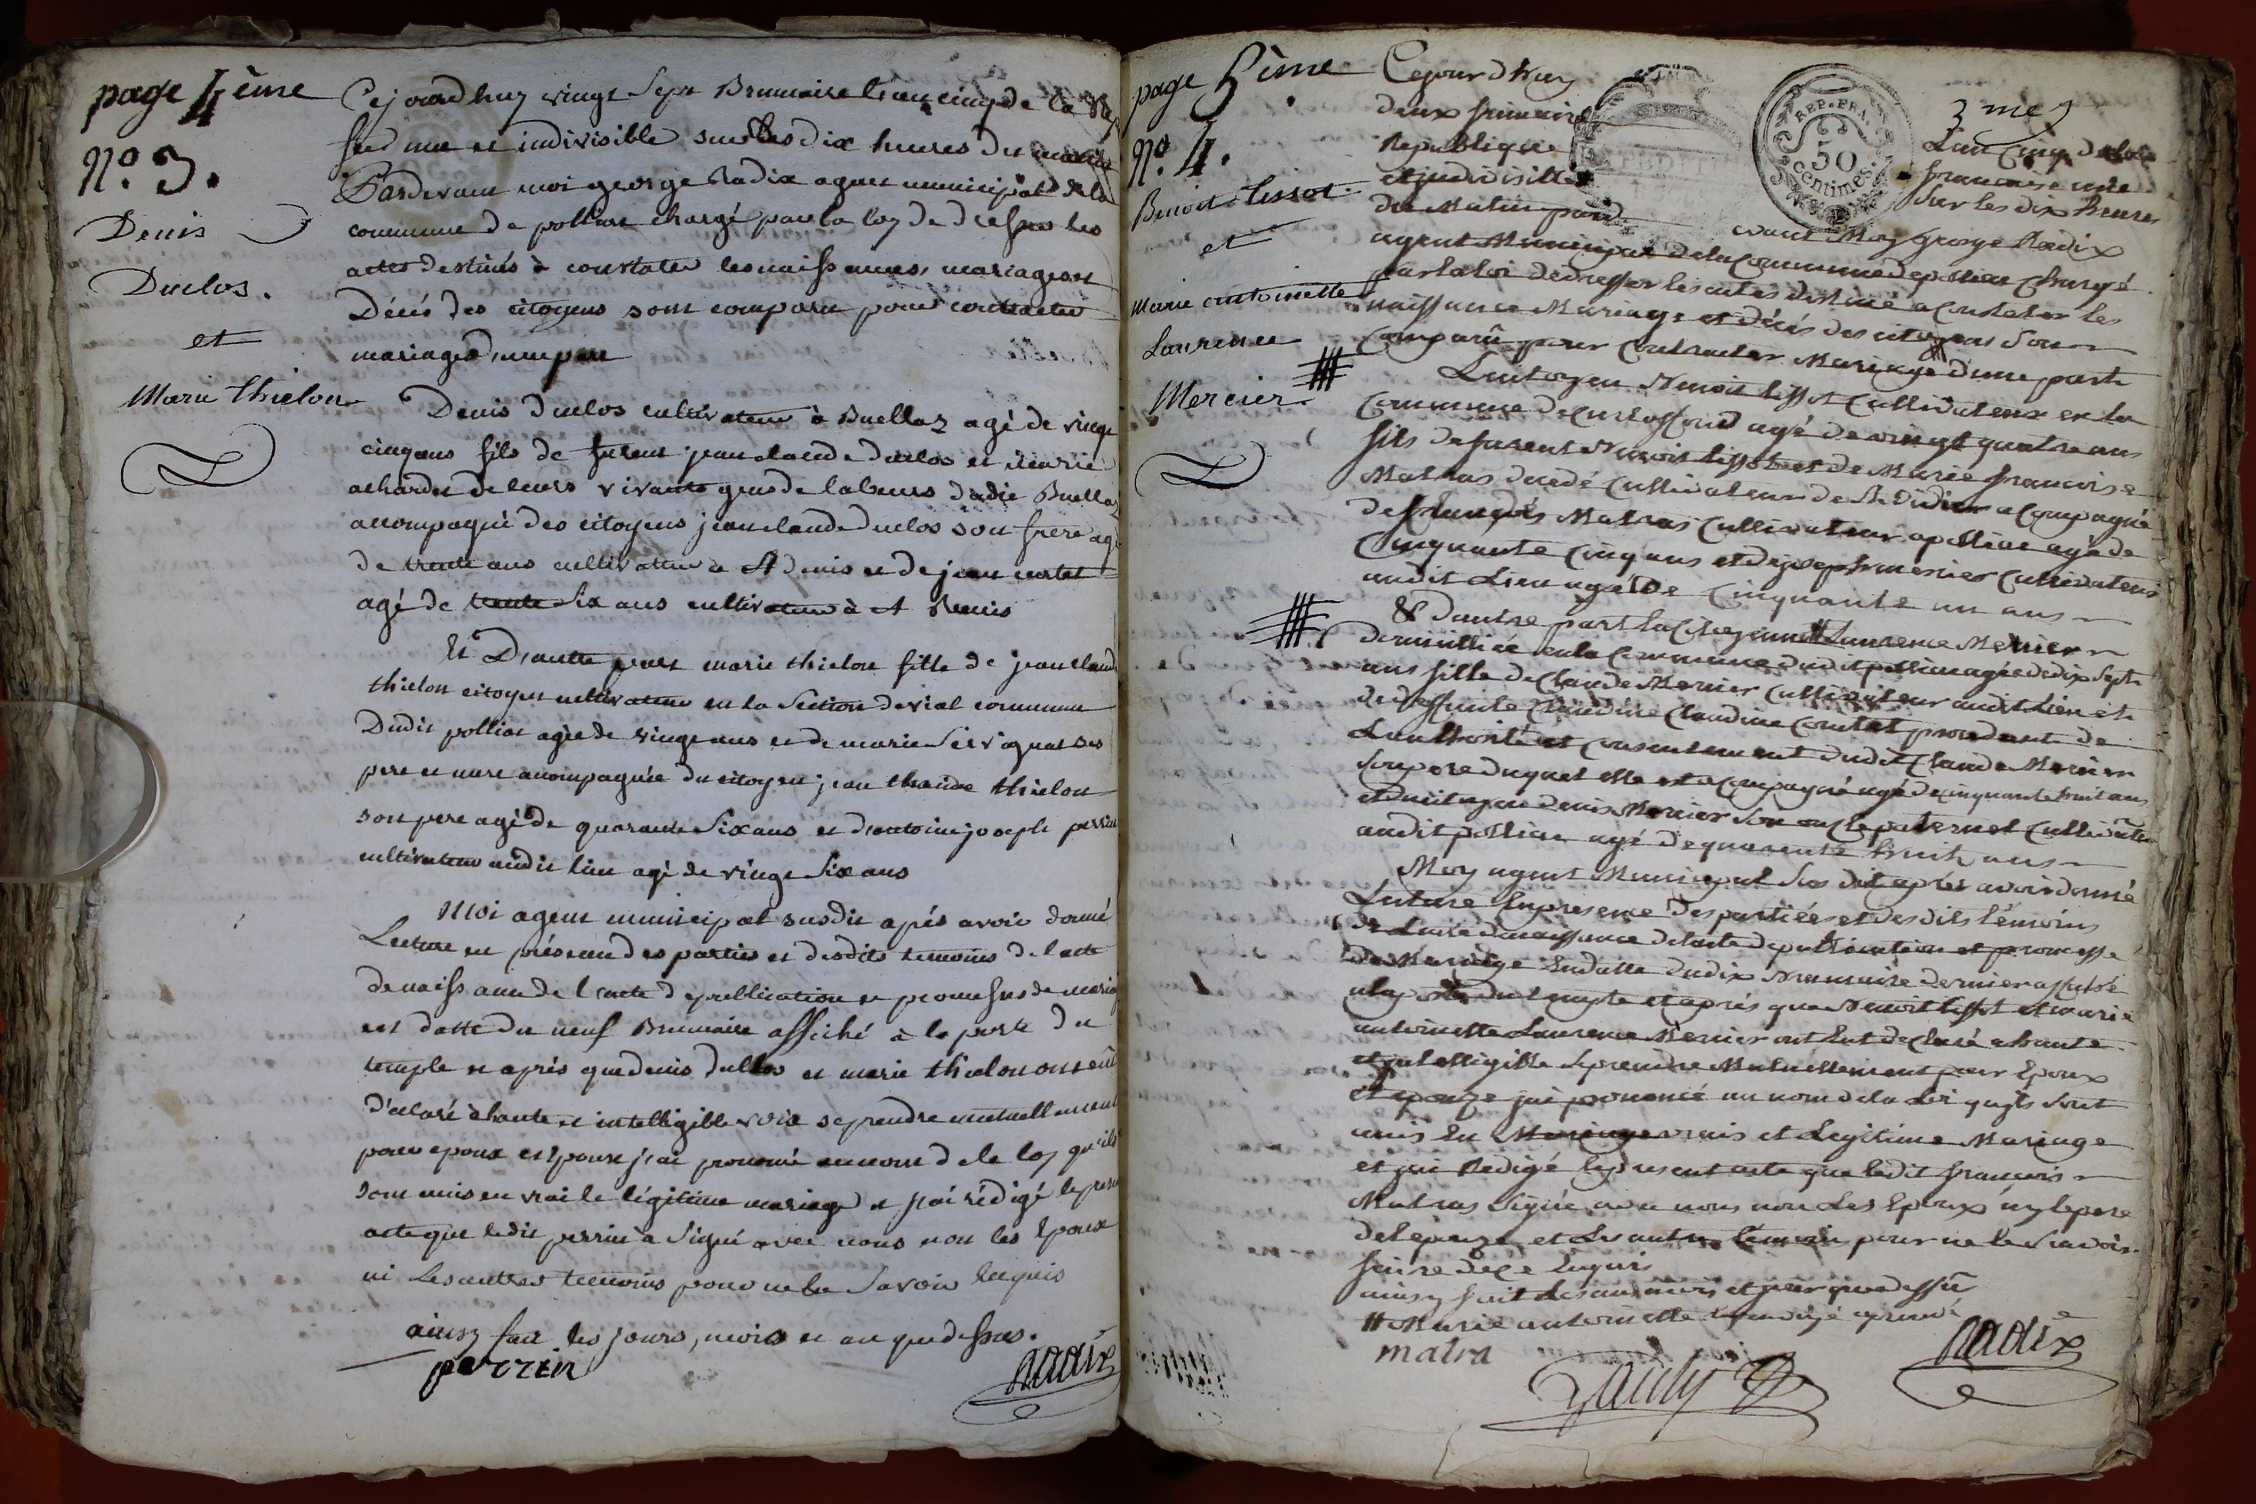 page 4ème
N.o 3.
Denis
Duclos.
et
Marie Thielon
Cejourdhuy vingt Sept Brumaire l'an cinq de la Rep
fse une et indivisible sur les dix heures du matin
Pardevant moi george Radix agent municipal de la
commune de polliat chargé par la loy de dresser les
actes destinés à constater les naissances, mariages et
Décés des citoyens sont comparu pour contracter
mariage d'une part
Denis Duclos cultivateur à Buellaz agé de vingt
cinq ans fils de jean claude duclos et Marie
de leurs vivants gens de labeurs dudit Buellaz
accompagné des citoyens jean claude duclos son frere agé
de trente ans cultivateur a St denis et de jean
agé de trente Six ans cultivateur à St Denis
Et D'autre part marie thielon fille de jean claude
thielon citoyen cultivateur en la Section de vial commune
Dudit polliat agée de vingt ans et de marie Servignat ses
pere et mere accompagnée du citoyen jean claude thielon
son pere agé de quarante Six ans et d'antoine joseph perrin
cultivateur audit lieu agé de vingt Six ans
Moi agent municipal susdit après avoir donné
Lecture en présence des parties et desdits temoins de l'acte
de naissance de l'acte de publication et promesses de mariage
en datte du neuf Brumaire affiché à la porte du
temple et après que denis duclos et marie thielon ont eut
déclaré à haute et intelligible voix se prendre mutuellement
pour epoux et Epouse j'ai prononcé au nom de la loy qu'ils
sont unis en vrai le légitime mariage et j'ai rédigé le present
acte que ledit perrin à Signé avec nous non les Epoux
ni les autres temoins pour ne le Savoir Requis
ainsy fait les jours, mois et an que dessus.
perrin
Radix
page 5ème
N.o 4.
Benoit tissot
et
Marie antoinette
Laurence
Mercier
Cejourd'huy
deux frimaire
Republique
et indivisible
du Matin pard
3me
L'an Cinq de la
francaise une
Sur les dix heures
REP. FRA.
50
centimes.
evant Moy George Radix
agent Municipal de la Commune de polliat Chargé
par la loi de dresser les actes destiné a Constater les
naissance Mariage et décés des citoyens Sont
Comparû pour Contracter Mariage d'une part
Le citoyen Benoit tissot Cultivateur en la
Commune de curtafond agé de vingt quatre ans
fils de Benoit tissot et de Marie francoise
Matras decedé Cultivateur de St Didier accompagné
de françois Matras Cultivateur a polliat agé de
Cinquante Cinq ans et de joseph mercier Cultivateur
audit Lieu agé de Cinquante un ans
& d'autre part la Citoyenne Laurence Mercier
domicilliée en la Commune dudit polliat agée de dix Sept
ans fille de Claude Mercier Cultivateur audit Lieu et
de deffunte Claudine Claudine Contet procedant de
L'authorité et Consentement dudit Claude Mercier
Son pere duquel elle est accompagné agé de cinquante huit ans
et du citoyen denis Mercier Son oncle paternel Cultivateur
audit polliat agé de quarante huit ans
Moy agent Municipal Sus dit aprés avoir donné
Lecture En presence des partiées et des dits témoins
de L'acte de naissance de lacte de publication et promesse
de Mariage En datte du dix Brumaire dernier affiché
a la porte du temple et aprés que Benoit tissot et marie
antoinette Laurence Mercier ont Eut declaré a haute
et intelligible Se prendre Mutuellement pour Epoux
et epouze jai prononcé au nom de la Loi quils Sont
unis En Mariage vrais et Legitime Mariage
et jai Rédigé le present acte que ledit francois
Matras Signé avec nous non Les Epoux ny le pere
de l'epouze et Les autres temoin pour ne le Scavoir
faire de ce Enquis
ainsy fait Les an mois et jour que dessû
Marie antoinette
matra
Radix